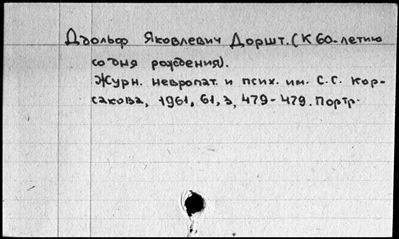 Адольф Яковлевич Доршт. (К 60-летию
со дня рождения).
Журн. невропат. и псих. им. С.С. Кор-
сакова, 1961, 61, 3, 479-479. Портр.